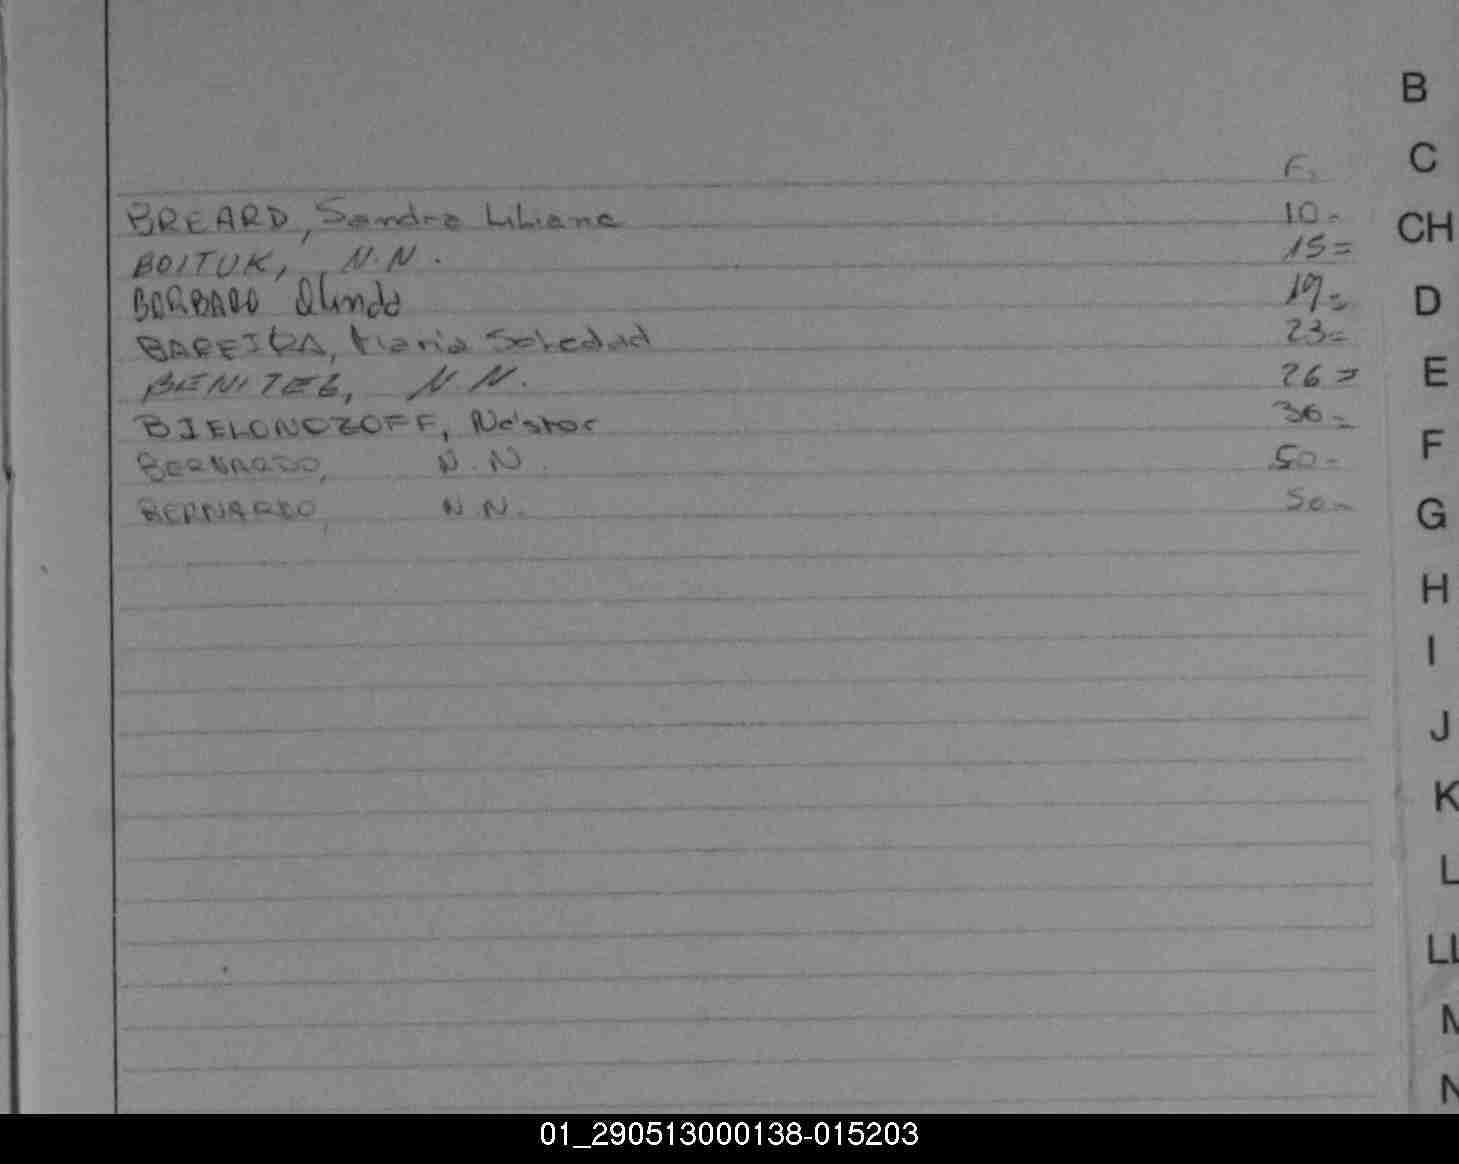 F.
BREARD, Sandra Liliana 10-
BOITUK, N.N. 15=
BORBADO Olindo 19=
BAREIRA, Maria Soledad 23=
BENITEZ, N N. 26=
BIELONOZOFF, Néstor 36-
BERNARDO, N.N. 50-
BERNARDO, N N. 50-
B
C
CH
D
E
F
G
H
I
J
K
L
LL
M
N
01_290513000138-015203